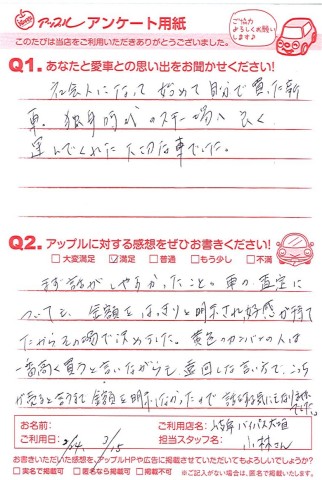 アップル アンケート用紙
このたびは当店をご利用いただきありがとうございました。
ご協力
よろしくお願い
します♪
Q1. あなたと愛車との思い出をお聞かせください!
社会人になって 始めて自分で買った新
車。独身時代のスキー場へ 良く
運んでくれた大切な車でした。
Q2. アップルに対する感想をぜひお書きください!
□大変満足 ☑満足 □普通 □もう少し □不満
まず話がしやすかったこと。車の査定に
ついても、金額をはっきりと明示され、好感が持て
たからその場で決めました。黄色のカンバンの人は
一番高く買うと言いながらも、言い方で、こちら
金額を明示しなかったので
お名前:
ご利用日: 2/24 3/15
ご利用店名: バイパス大畑
担当スタッフ名: 小林さん
お書きいただいた感想を、アップルHPや広告に掲載させていただいてもよろしいでしょうか?
□実名で掲載可 □匿名なら掲載可 □掲載不可 ※ご記入がない場合は、匿名で掲載いたします。